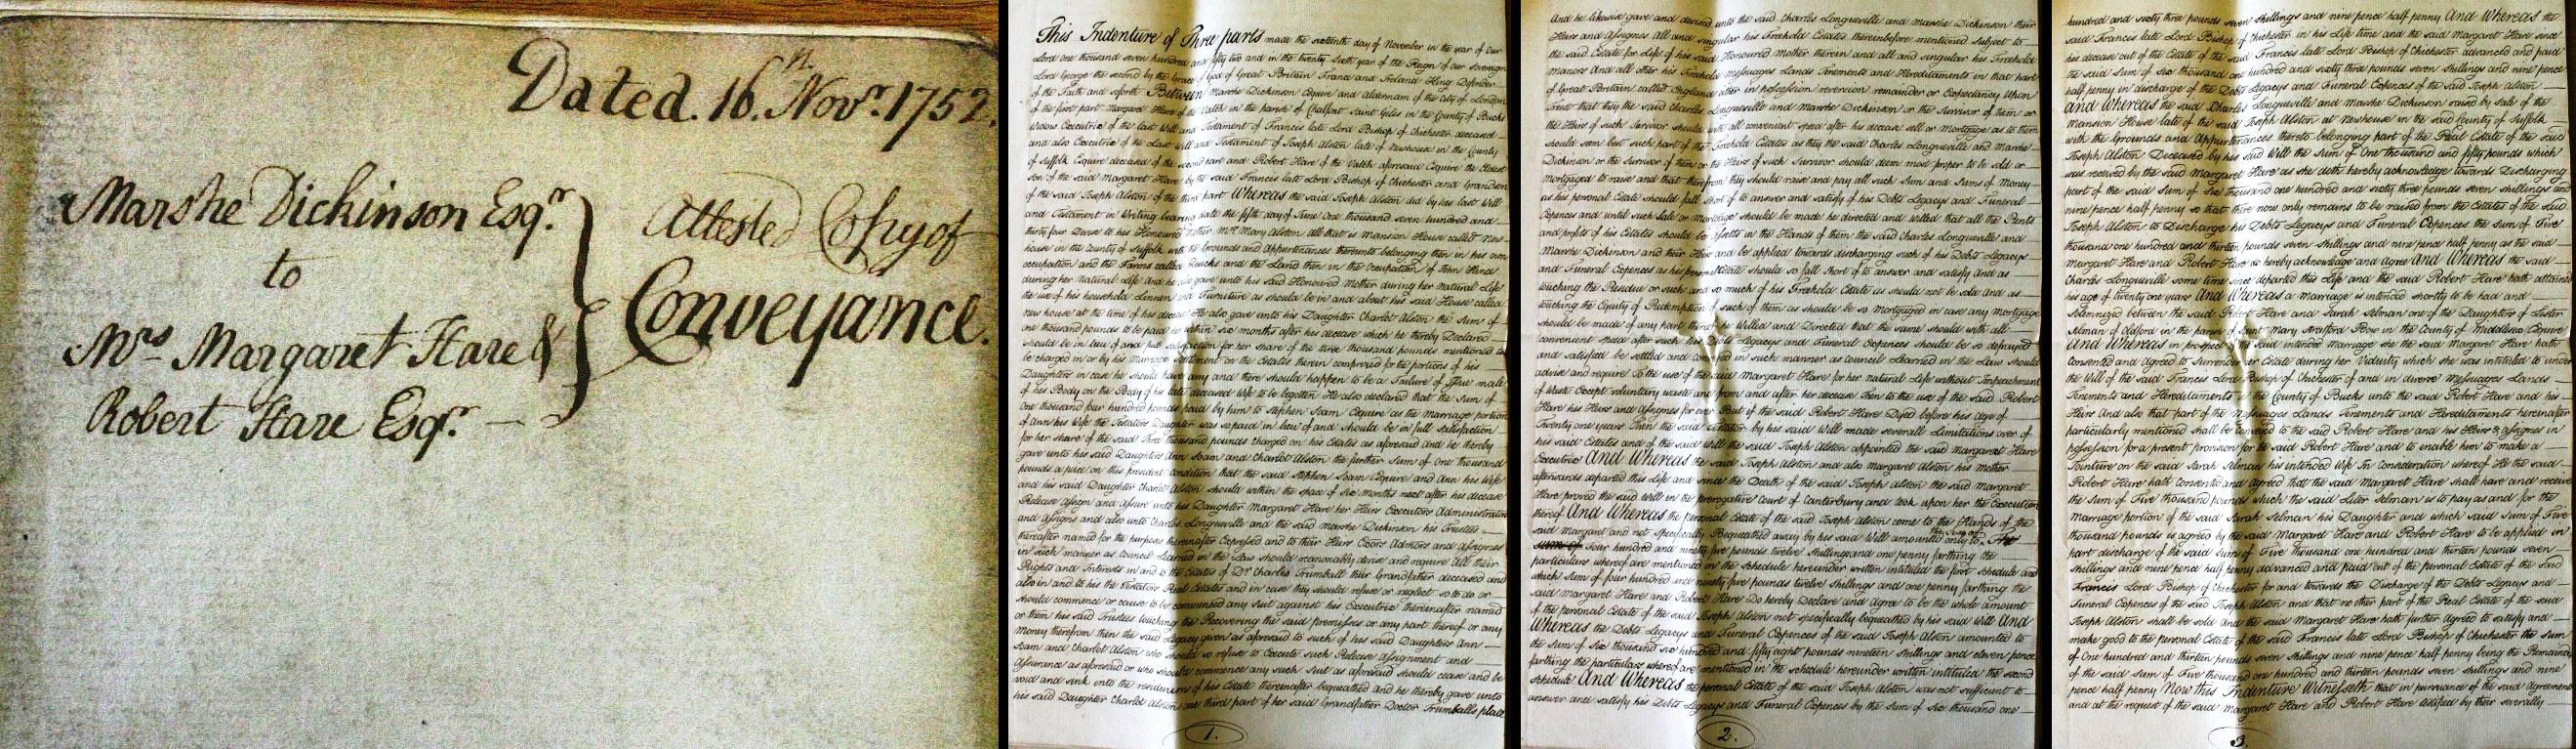 Dated. 16.th Novr. 1752.
Marshe Dickinson Esqr.
to
Mrs Margaret Hare &
Robert Hare Esqr.
Attested Copy of
Conveyance.
This Indenture of Three parts made the sixteenth day of November in the year of our
Lord one thousand seven hundred and fifty two and in the twenty Sixth year of the Reign of our Sovereign
Lord George the second by the Grace of God of Great Britain France and Ireland King Defender
of the Faith and soforth Between Marshe Dickinson Esquire and Alderman of the City of London
of the first part Margaret Hare of the Vatch in the parish of Chalfont Saint Giles in the County of Bucks
Widow Executrix of the last Will and Testament of Francis late Lord Bishop of Chichester deceased
and also Executrix of the Last Will and Testament of Joseph Alston late of Newhouse in the County
of Suffolk Esquire deceased of the second part and Robert Hare of the Vatch aforesaid Esquire the Eldest
Son of the said Margaret Hare by the said Francis late Lord Bishop of Chichester and Grandson
of the said Joseph Alston of the third part Whereas the said Joseph Alston did by his last Will
and Testament in Writing bearing date the fifth day of June One thousand seven hundred and
thirty four Devise to his Honoured Mother Mrs. Mary Alston all that is Mansion House called New
house in the County of Suffolk with the Grounds and Appurtenances thereunto belonging then in his own
occupation and the Farms called Quicks and the Land then in the Occupation of John Hind
during her natural Life And he also gave unto his said Honoured Mother during her natural Life
the use of his household Linnen and Furniture as should be in and about his said House called
new house at the time of his decease He also gave unto his Daughter Charlot Alston the Sum of
one thousand pounds to be paid within six months after his decease which he thereby Declared
should be in lieu of and full satisfaction for her share of the three thousand pounds mentioned to
be charged in or by his Marriage Settlement on the Estates therein comprized for the portions of his
Daughters in case he should have any and there should happen to be a Failure of Issue male
of his Body on the Body of his late deceased Wife to be begotten He also declared that the Sum of
One thousand four hundred pounds paid by him to Stephen Soam Esquire as the marriage portion
of Ann his Wife the Testators Daughter was so paid in lieu of and should be in full Satisfaction
for her share of the said Three thousand pounds charged on his Estates as aforesaid And he thereby
gave unto his said Daughters Ann Soam and Charlot Alston the further Sum of One thousand
pounds a piece on this president condition that the said Stephen Soam Esquire and Ann his Wife
and his said Daughter Charlot Alston should within the space of Six months next after his decease
Release assign and Assure unto his Daughter Margaret Hare her Heirs Executors Administrators
and Assigns and also unto Charles Longueville and the said Marshe Dickinson his Trustees
thereafter named for the purposes thereinafter Expressed and to their Heirs Exors Admors and Assignes
in such manner as Council Learned in the Law should reasonably devise and require All their
Rights and Interests in and to the Estates of Dr Charles Trumball their Grandfather deceased and
also in and to his the Testators Real Estates and in case they should refuse or neglect so to do or
should commence or cause to be commenced any Suit against his Executrix thereinafter named
or them his said Trustees touching the Recovering the said premisses or any part thereof or any
Money therefrom then the said Legacy given as aforesaid to such of his said Daughters Ann
Soam and Charlot Alston who should so refuse to Execute such Release Assignment and
Assurance as aforesaid or who should commence any such Suit as aforesaid should cease and be
void and sink into the residuum of his Estate thereinafter bequeathed and he thereby gave unto
his said Daughter Charlot Alston one third part of her said Grandfather Doctor Trumballs plate
1.
And he likewise gave and devised unto the said Charles Longueville and Marshe Dickinson their
Heirs and Assignes all and singular his Freehold Estates thereinbefore mentioned Subject to
the said Estate for Life of his said Honoured Mother therein and all and singular his Freehold
manors And all other his Freehold messuages Lands Tenements and Hereditaments in that part
of Great Brittain called England either in possession reversion remainder or Expectancy Upon
Trust that they the said Charles Longueville and Marshe Dickinson or the Survivor of them or
the Heirs of such Survivor should with all convenient speed after his decease sell or Mortgage as to them
should seem best such part of the Freehold Estates as they the said Charles Longueville and Marshe
Dickinson or the Survivor of them or the Heirs of such Survivor should deem most proper to be sold or
mortgaged to raise and that therefrom they should raise and pay all such Sum and Sums of Money
as his personal Estate should fall short of to answer and satisfy of his Debts Legacys and Funeral
Expences and until such Sale or Mortgage should be made he directed and willed that all the Rents
and profits of his Estates should be Assetts in the Hands of them the said Charles Longueville and
Marshe Dickinson and their Heirs and be applied towards discharging such of his Debts Legacys
and Funeral Expences as his personal Estate should so fall Short of to answer and satisfy And as
touching the Residue or such and so much of his Freehold Estate as should not be sold and as
touching the Equity of Redemption of such of them as should be so Mortgaged in case any mortgage
should be made of any part thereof he Willed and Directed that the same should with all
convenient speed after such his Debts Legacys and Funeral Expences should be so defrayed
and satisfied be settled and conveyed in such manner as council Learned in the Law should
advise and require To the use of the said Margaret Hare for her natural Life without Impeachment
of Waste Except voluntary waste and from and after her decease then to the use of the said Robert
Hare his Heirs and Assignes for ever But if the said Robert Hare Dyed before his age of
Twenty one years Then the said testator by his said Will made severall Limitations over of
his said Estates and of the said Will the said Joseph Alston appointed the said Margaret Hare
Executrix And Whereas the said Joseph Alston and also Margaret Alston his mother
afterwards departed this Life and since the Death of the said Joseph Alston the said Margaret
Hare proved the said Will in the prerogative Court of Canterbury and took upon her the Execution
thereof And Whereas the personal Estate of the said Joseph Alston come to the Hands of the
said Margaret and not Specifically Bequeathed away by his said Will amounted only to the Sum of
Four hundred and ninety five pounds twelve Shillings and one penny farthing the
particulars whereof are mentioned in the Schedule hereunder written intituled the first Schedule and
which Sum of four hundred and ninety five pounds twelve Shillings and one penny farthing the
said Margaret Hare and Robert Hare Do hereby Declare and agree to be the whole amount
of the personal Estate of the said Joseph Alston not specifically bequeathed by his said Will And
Whereas the Debts Legacys and Funeral Expences of the said Joseph Alston amounted to
the Sum of Six thousand six hundred and fifty eight pounds nineteen Shillings and eleven pence
farthing the particulars whereof are mentioned in the Schedule hereunder written intituled the second
Schedule And Whereas the personal Estate of the said Joseph Alston was not sufficient to
answer and satisfy his Debts Legacys and Funeral Expences by the Sum of Six thousand one
2.
hundred and sixty three pounds seven Shillings and nine pence half penny And Whereas the
said Francis late Lord Bishop of Chichester in his Life time and the said Margaret Hare since
his decease out of the Estate of the said Francis late Lord Bishop of Chichester advanced and paid
the said Sum of Six thousand one hundred and sixty three pounds seven Shillings and nine pence
half penny in discharge of the Debts Legacys and Funeral Expences of the said Joseph Alston
And Whereas the said Charles Longueville and Marshe Dickinson raised by Sale of the
Mansion House late of the said Joseph Alston at Newhouse in the said County of Suffolk
with the Grounds and Appurtenances thereto belonging part of the Real Estate of the said
Joseph Alston Deceased by his said Will the Sum of One thousand and fifty pounds which
was received by the said Margaret Hare as she doth hereby acknowledge towards Discharging
part of the said Sum of Six thousand one hundred and sixty three pounds seven Shillings and
nine pence half penny so that there now only remains to be raised from the Estates of the said
Joseph Alston to Discharge his Debts Legacys and Funeral Expences the sum of Five
thousand one hundred and thirteen pounds seven Shillings and nine pence half penny as the said
Margaret Hare and Robert Hare do hereby acknowledge and Agree And Whereas the said
Charles Longueville some time since departed this Life and the said Robert Hare hath attained
his age of twenty one years And Whereas a marriage is intended shortly to be had and
Solemnized between the said Robert Hare and Sarah Selman one of the Daughters of Lister
Selman of Oldford in the parish of Saint Mary Stratford Bow in the County of Middlesex Esquire
And Whereas in prospect of the said intended marriage she the said Margaret Hare hath
Consented and agreed to Surrender the Estate during her Viduity which she was intituled to under
the Will of the said Francis Lord Bishop of Chichester of and in diverse Messuages Lands
Tenements and Hereditaments in the County of Bucks unto the said Robert Hare and his
Heirs And also that part of the Messuages Lands Tenements and Hereditaments hereinafter
particularly mentioned shall be conveyed to the said Robert Hare and his Heirs & Assigns in
possession for a present provision for he said Robert Hare and to enable him to make a
Jointure on the said Sarah Selman his intended Wife In Consideration whereof He the said
Robert Hare hath Consented and agreed that the said Margaret Hare shall have and receive
the Sum of Five thousand pounds which the said Lister Selman is to pay as and for the
Marriage portion of the said Sarah Selman his Daughter and which said Sum of Five
thousand pounds is agreed by the said Margaret Hare and Robert Hare to be applied in
part discharge of the said Sum of Five thousand one hundred and thirteen pounds seven
Shillings and nine pence half penny advanced and paid out of the personal Estate of the Said
Francis Lord Bishop of Chichester for and towards the Discharge of the Debts Legacys and
Funeral Expences of the said Joseph Alston and that no other part of the Real Estate of the said
Joseph Alston shall be sold And the said Margaret Hare hath further Agreed to satisfy and
make good to the personal Estate of the said Francis late Lord Bishop of Chichester the sum
of One hundred and thirteen pounds seven Shillings and nine pence half penny being the Remainder
of the said Sum of Five thousand one hundred and thirteen pounds seven shillings and nine
pence half penny Now this Indenture Witnesseth that in pursuance of the said Agreement
and at the request of the said Margaret Hare and Robert Hare testified by their severally
3.